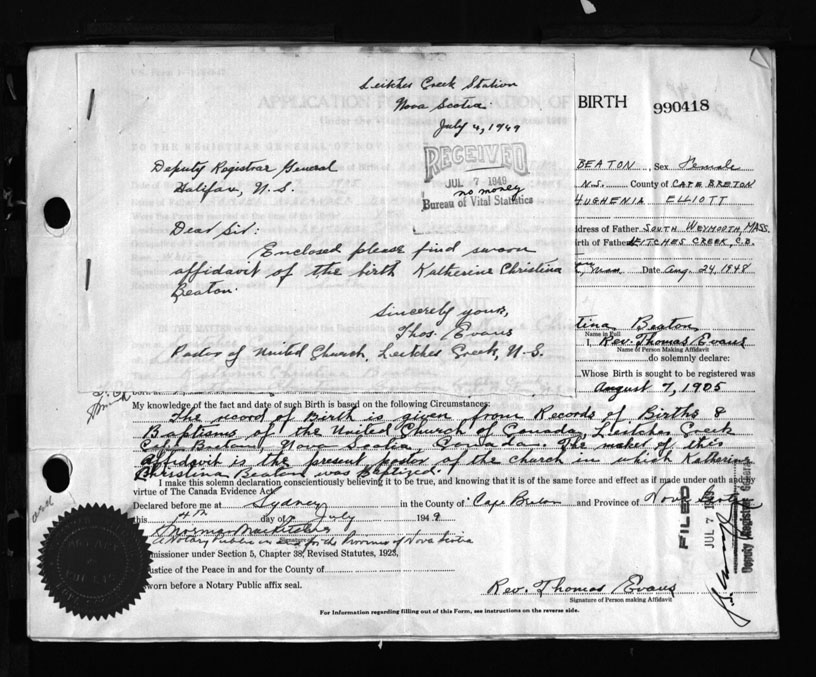 Leitches Creek Station
Nova Scotia.
July 4, 1949
RECEIVED
JUL 7 1949
no money
Bureau of Vital Statistics
Deputy Registrar General
Halifax, N.S.
Dear Sir:
Enclosed please find sworn
affidavit of the birth Katherine Christina
Beaton.
Sincerely yours,
Thos. Evans
Pastor of United Church, Leitches Creek, N.S.
BIRTH 990418
BEATON Sex Female
N.S. County of CAPE BRETON
HUGHENIA ELLIOTT
dress of Father SOUTH WEYMOUTH, MASS.
rth of Father LEITCHES CREEK, C.B.
Mass. Date Aug. 24, 1948
tina Beaton
Name in Full
I, Rev. Thomas Evans
Name of Person Making Affidavit
do solemnly declare:
Whose Birth is sought to be registered was
August 7, 1905
My knowledge of the fact and date of such Birth is based on the following Circumstances:
The record of Birth is given from Records of Births &
Baptisms of the United Church of Canada, Leitches Creek
Cape Breton, Nova Scotia Canada. The maker of this
affidavit is the present pastor of the church in which Katherine
Christina Beaton was baptized.
I make this solemn declaration conscientiously believing it to be true, and knowing that it is of the same force and effect as if made under oath and by
virtue of The Canada Evidence Act.
Declared before me at Sydney in the County of Cape Breton and Province of Nova Scotia
this 4th day of July 1949
A Notary Public in and for the Province of Nova Scotia
missioner under Section 5, Chapter 38, Revised Statutes, 1923,
ustice of the Peace in and for the County of
worn before a Notary Public affix seal.
Rev. Thomas Evans
Signature of Person making Affidavit
For Information regarding filling out of this Form, see instructions on the reverse side.
FILED
JUL 7 1949
Deputy Registrar General